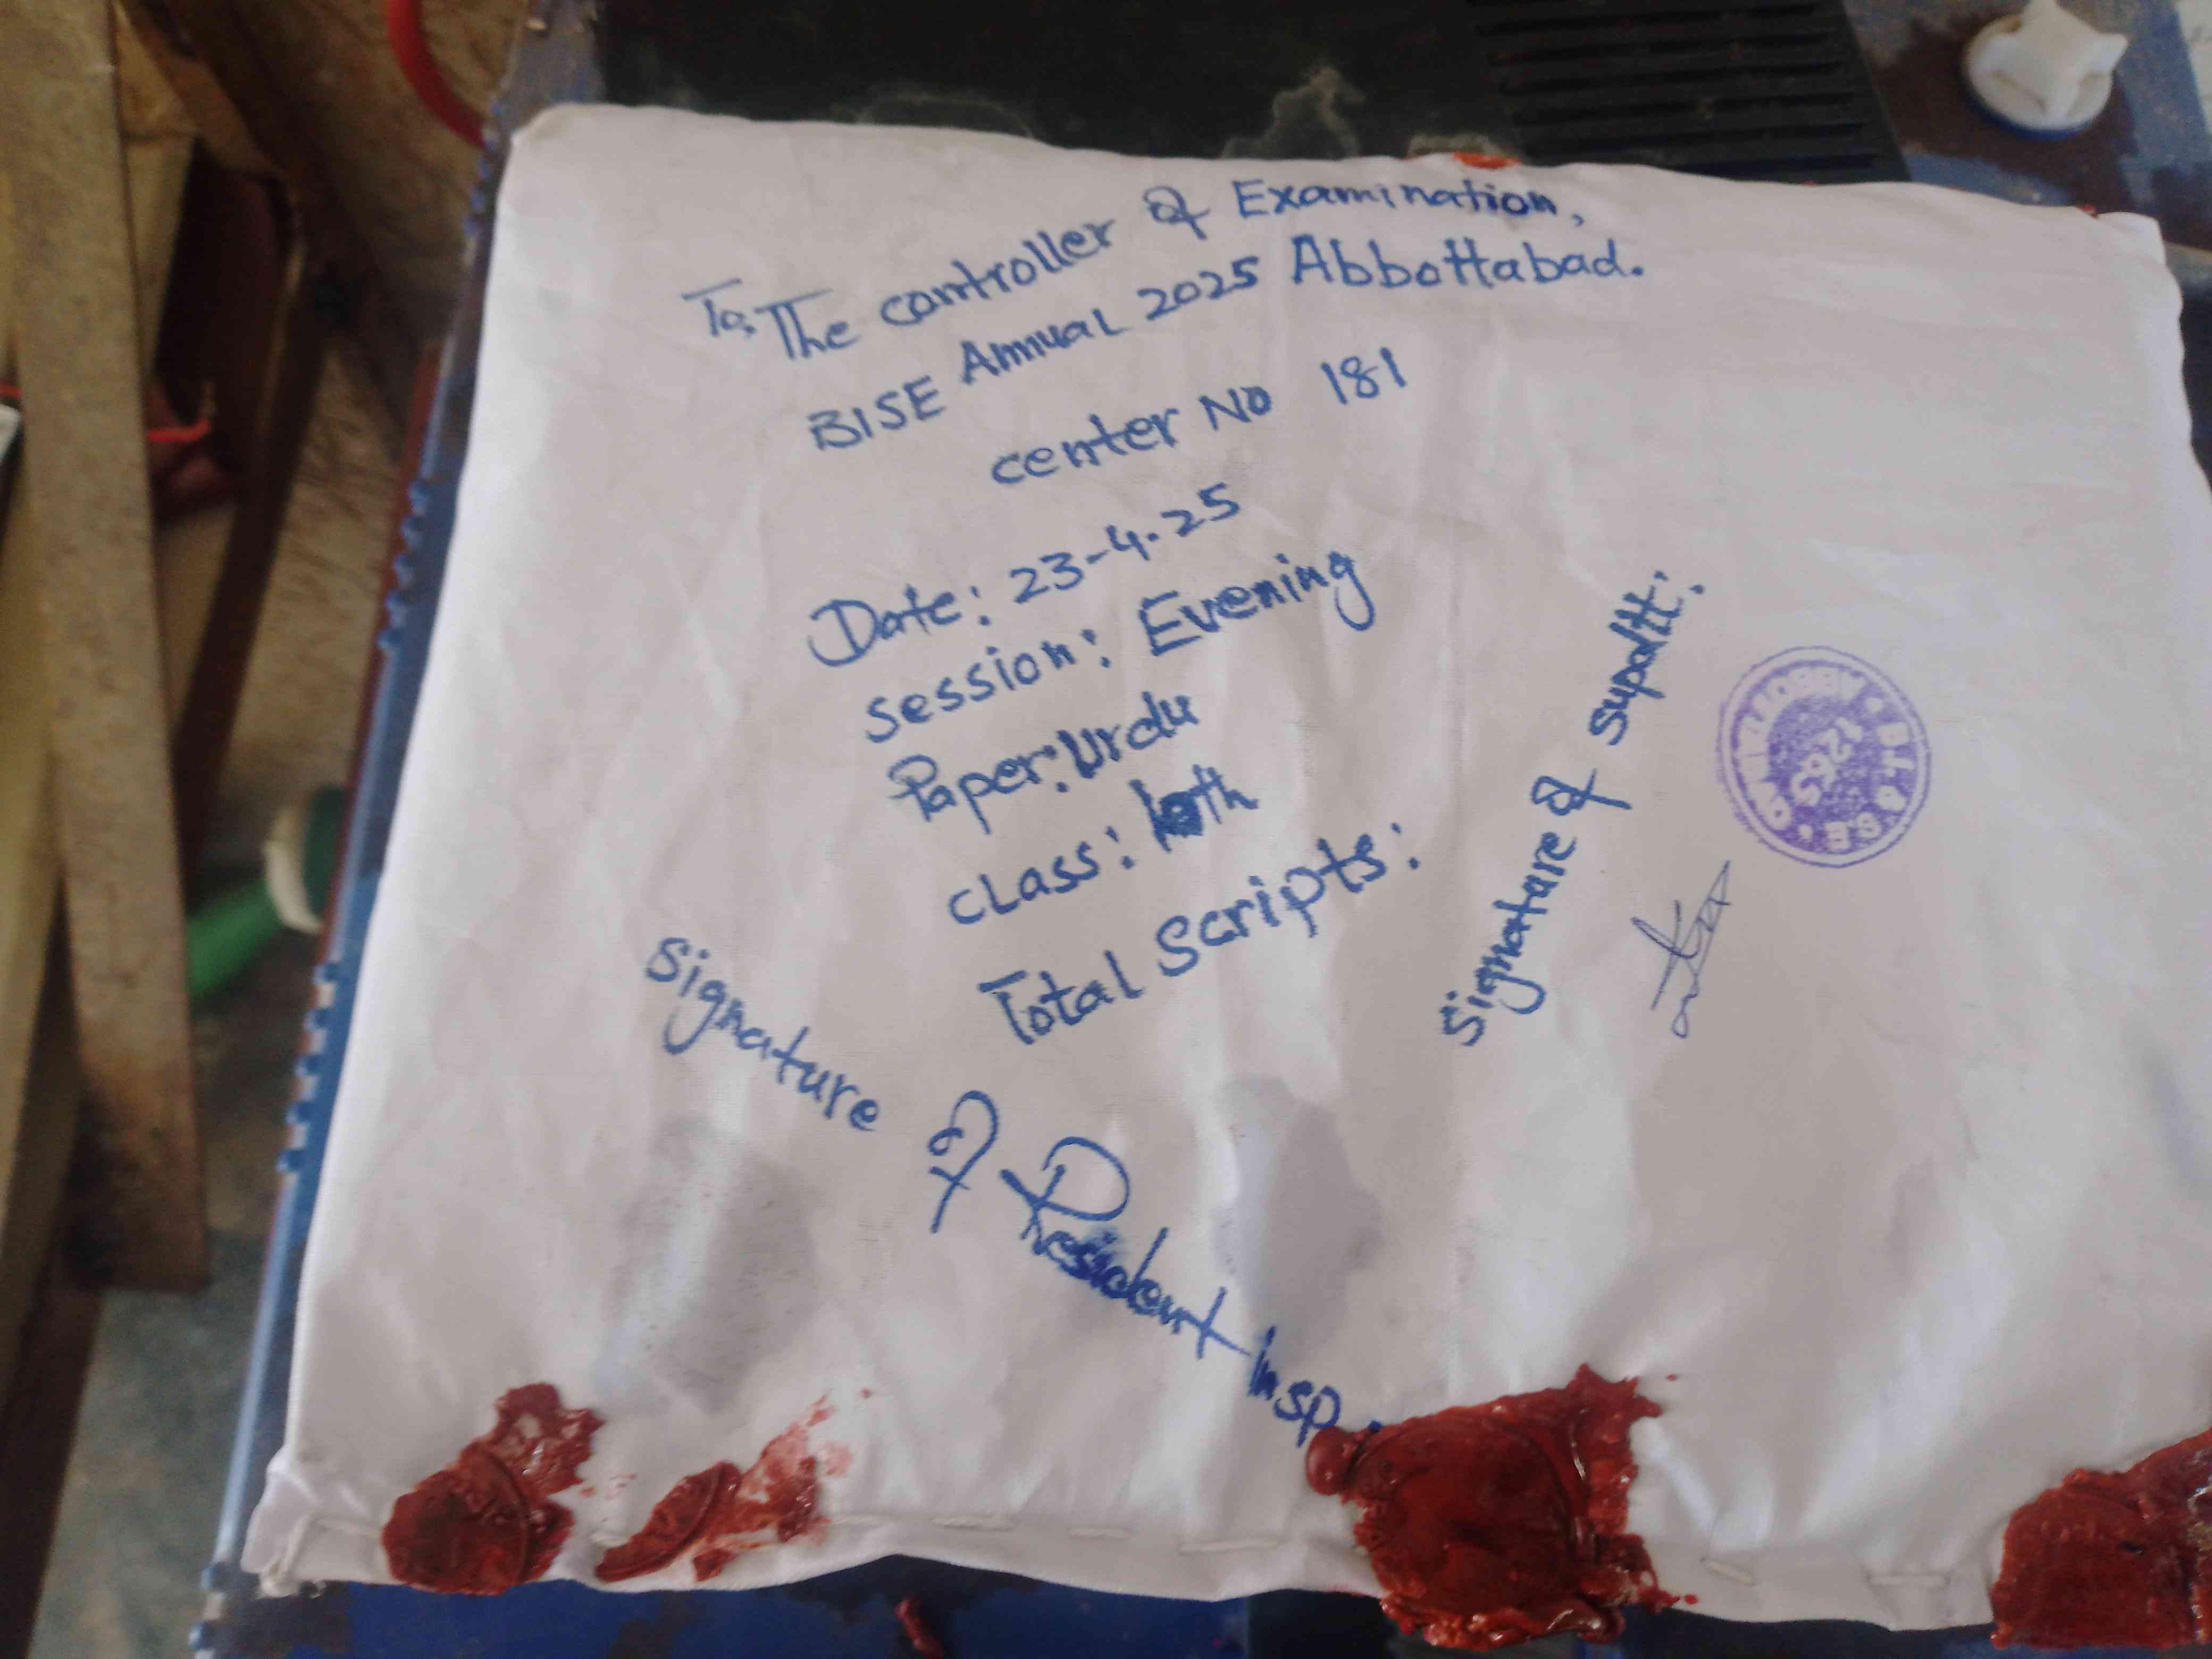 To, The controller of Examination,
BISE Annual 2025 Abbottabad.
center No 181
Date: 23-4.25
Session: Evening
Paper: Urdu
class: 10th
Total Scripts:
Signature of Supdtt:
Signature of Resident Insp